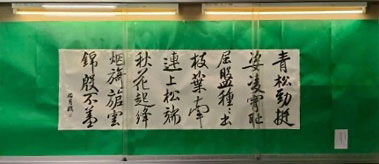 青松勁挺
姿凌霄耻
屈盤種〻出
枝葉牽
連上松端
秋花起絳
烟旖旎雲
錦殷不羞